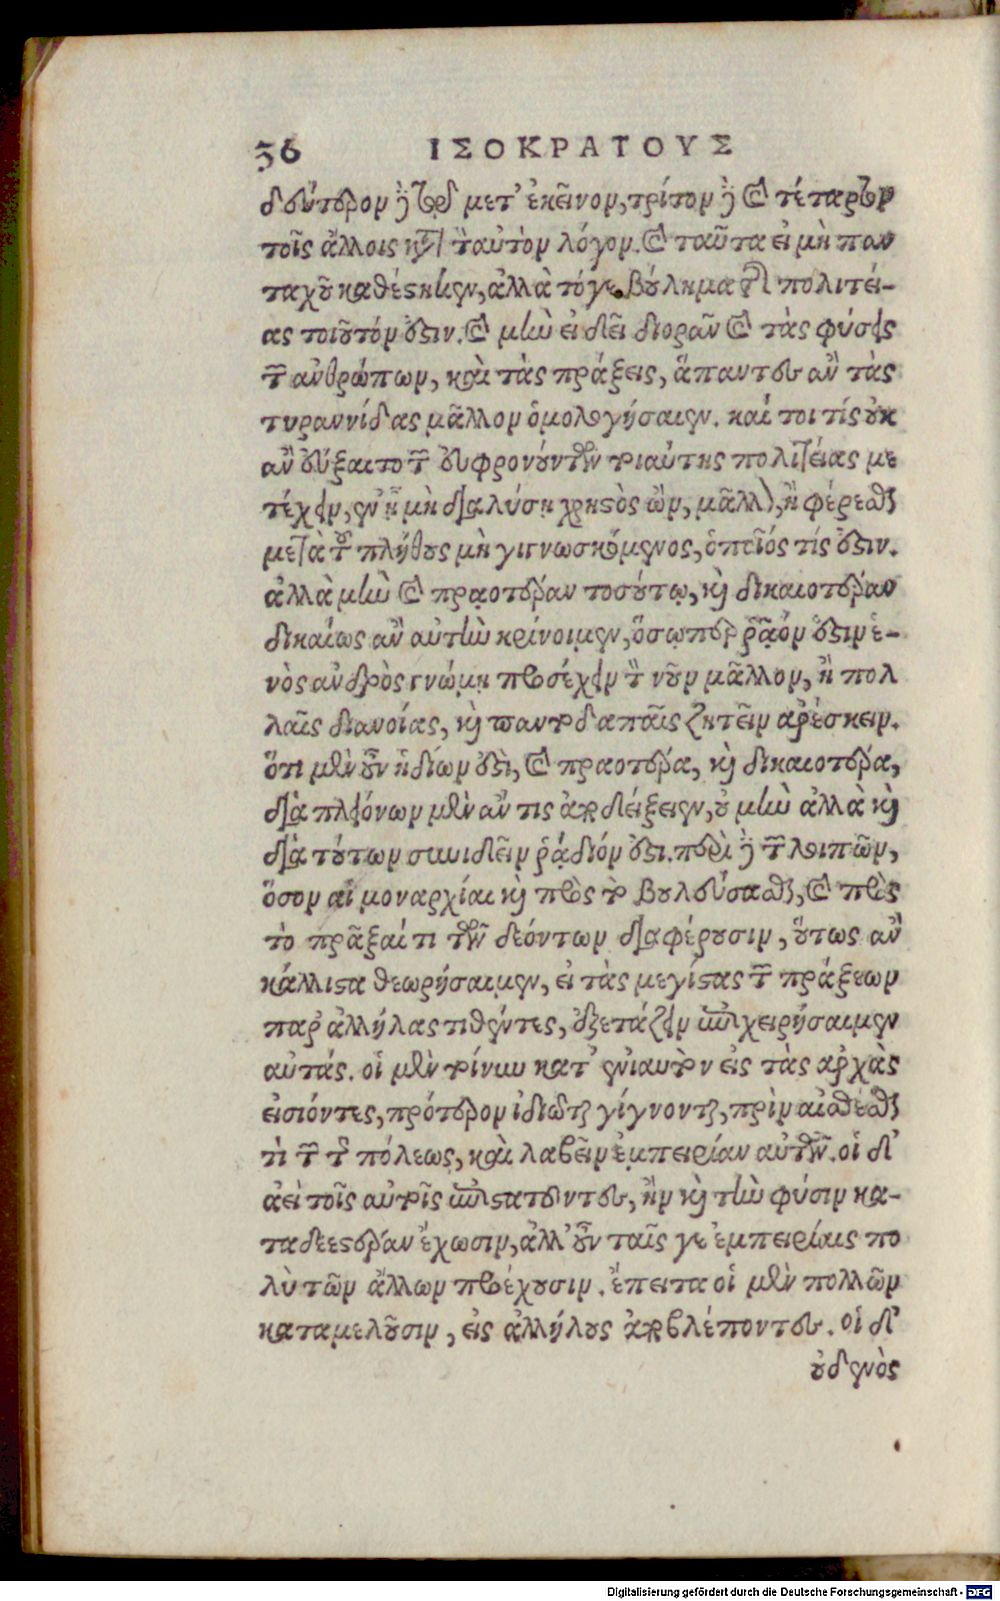 36 ΙΣΟΚΡΑΤΟΥΣ
δεύτερον δὲ τῷ μετ' ἐκεῖνον, τρίτον δὲ καὶ τέταρτον
τοῖς ἄλλοις κατὰ τὸ αὐτὸν λόγον. καὶ ταῦτα εἰ μὴ παν
ταχοῦ καθέστηκεν, ἀλλὰ τό γε βούλημα τῆς πολιτεί-
ας τοιοῦτόν ἐστιν. καὶ μὴν εἰ δεῖ διορᾶν καὶ τὰς φύσεις
τῶν ἀνθρώπων, καὶ τὰς πράξεις, ἅπαντες ἂν τὰς
τυραννίδας μᾶλλον ὁμολογήσαιεν. καί τοι τίς οὐκ
ἂν εὔξαιτο τῶν εὐφρονούντων τοιαύτης πολιτείας με
τέχειν, ἐν ᾗ μὴ διαλύσῃ χρηστὸς ὢν, μᾶλλον, ἢ φέρεσθαι
μετὰ τοῦ πλήθους μὴ γιγνωσκόμενος, ὁποῖός τίς ἐστιν.
ἀλλὰ μὴν καὶ πρᾳοτέραν τοσούτῳ, καὶ δικαιοτέραν
δικαίως ἂν αὐτὴν κρίνοιμεν, ὅσῳπερ ῥᾷόν ἐστιν ἑ-
νὸς ἀνδρὸς γνώμῃ προσέχειν τὸν νοῦν μᾶλλον, ἢ πολ
λαῖς διανοίας, καὶ παντοδαπαῖς ζητεῖν ἀρέσκειν.
ὅτι μὲν οὖν ἡδίων ἐστὶ, καὶ πραοτέρα, καὶ δικαιοτέρα,
διὰ πλειόνων μὲν ἄν τις ἀποδείξειεν, οὐ μὴν ἀλλὰ καὶ
διὰ τούτων συνιδεῖν ῥᾴδιόν ἐστι. περὶ δὲ τῶν λοιπῶν,
ὅσον αἱ μοναρχίαι καὶ πρὸς τὸ βουλεύσασθαι, καὶ πρὸς
τὸ πρᾶξαί τι τῶν δεόντων διαφέρουσιν, οὕτως ἂν
κάλλιστα θεωρήσαιμεν, εἰ τὰς μεγίστας τῶν πράξεων
παρ' ἀλλήλας τιθέντες, ἐξετάζειν ἐπιχειρήσαιμεν
αὐτάς. οἱ μὲν τοίνυν κατ' ἐνιαυτὸν εἰς τὰς ἀρχὰς
εἰσιόντες, πρότερον ἰδιῶται γίγνονται, πρὶν αἰσθέσθαι
τὶ τῶν τῆς πόλεως, καὶ λαβεῖν ἐμπειρίαν αὐτῶν. οἱ δ'
ἀεὶ τοῖς αὐτοῖς ἐπιστατοῦντες, ἢν καὶ τὴν φύσιν κα-
ταδεεστέραν ἔχωσιν, ἀλλ' οὖν ταῖς γε ἐμπειρίαις πο
λὺ τῶν ἄλλων προέχουσιν. ἔπειτα οἱ μὲν πολλῶν
καταμελοῦσιν, εἰς ἀλλήλους ἀποβλέποντες. οἱ δ'
οὐδενὸς
Digitalisierung gefördert durch die Deutsche Forschungsgemeinschaft - DFG